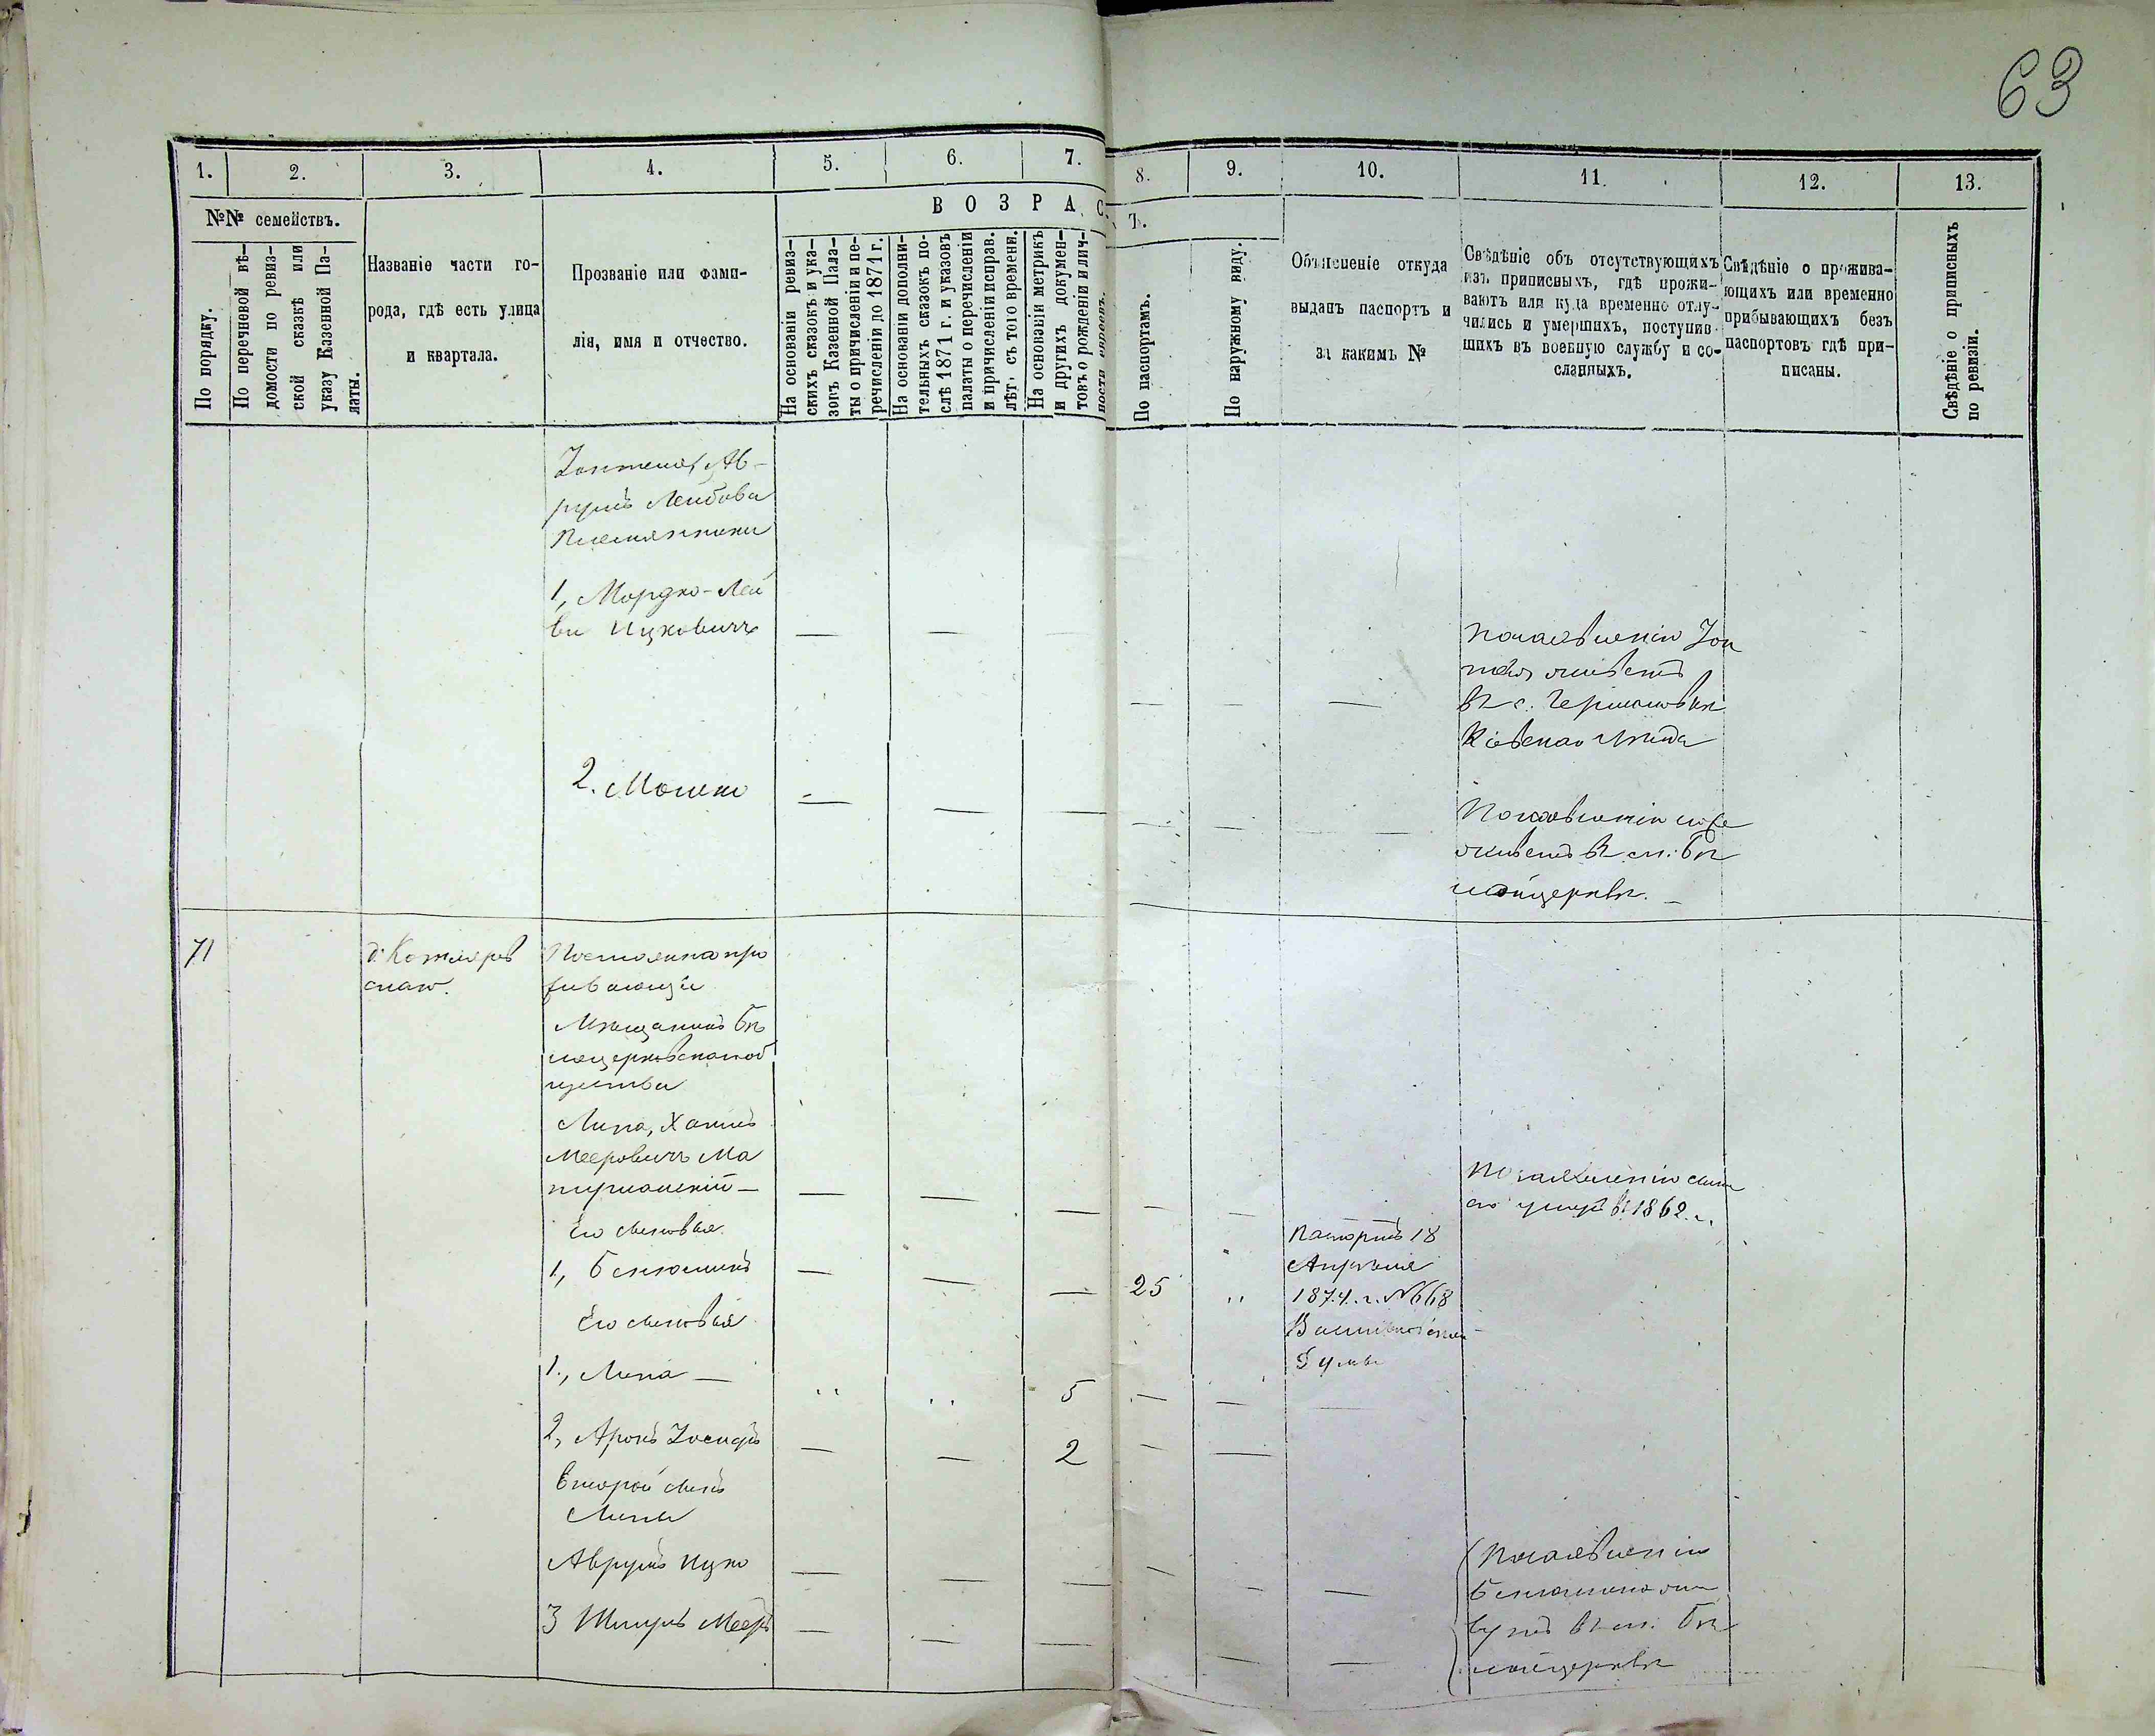 63
1. 2. 3. 4. 5. 6. 7. 8. 9. 10. 11. 12. 13.
№№ семействъ.
По порядку.
По перечневой вѣ-
домости по ревиз-
ской сказкѣ или
указу Казенной Па-
латы.
Названіе части го-
рода, гдѣ есть улица
и квартала.
Прозваніе или фами-
лія, имя и отчество.
ВОЗРАС
Т.
На основаніи ревиз-
скихъ сказокъ и ука-
зовъ Казенной Пала-
ты о причисленіи и пе-
речисленіи до 1871 г.
На основаніи дополни-
тельныхъ сказокъ по-
слѣ 1871 г. и указовъ
палаты о перечисленіи
и причисленіи исправ.
лѣт. съ того времени.
На основаніи метрикъ
и другихъ докумен-
товъ о рожденіи и лич-
ности евреевъ.
По паспортамъ.
По наружному виду.
Объясненіе откуда
выданъ паспортъ и
за какимъ №
Свѣдѣніе объ отсутствующихъ
изъ приписныхъ, гдѣ прожи-
ваютъ или куда временно отлу-
чились и умершихъ, поступив-
шихъ въ военную службу и со-
сланныхъ.
Свѣдѣніе о прожива-
ющихъ или временно
прибывающихъ безъ
паспортовъ гдѣ при-
писаны.
Свѣдѣніе о приписныхъ
по ревизіи.
Ав-
румъ Лейбова
Племянники
1, Мордко-Лей
ба Ицковичъ — —
По заявленію
живетъ
въ с. Германовкѣ
Кіевскаго Уѣзда
2. Мошко — — —
По заявленію
живетъ въ м: Бѣ
лойцеркви. —
71
д. Котляръ
Постоянно про
живающіе
Мѣщанинъ Бѣ
лоцерковскаго об
щества
Липа, Хаимъ
Мееровичъ Ма
— — — — — —
По заявленію
умеръ въ 1862. г.
Его сыновья
1, Беньюминъ — — — 25 "
Паспортъ 18
Апрѣля
1874. г. № 668
Думы
Его сыновья
1., Липа — " " 5 — —
2, Аронъ Іосифъ — — 2 — —
Второй сынъ
Липы
Аврумъ Ицко — — — — — —
3 Шмуль Мееръ — — — — —
По заявленію
Беньюмина жи
вутъ въ м. Бѣ
лойцеркви